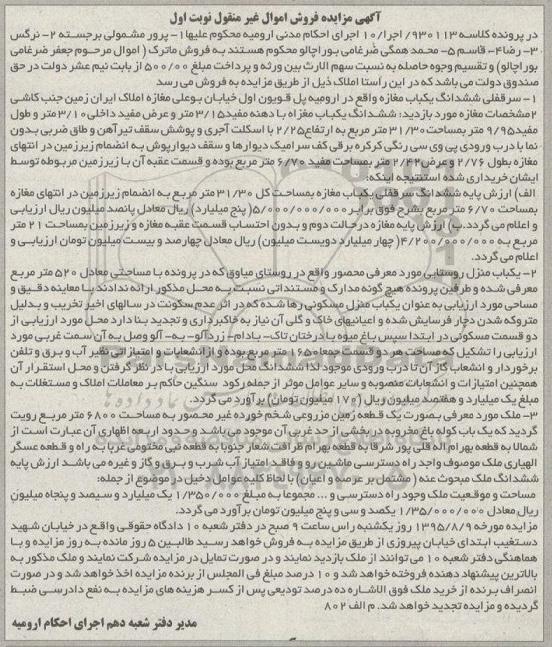 آگهی مزایده فروش اموال غیر منقول نوبت اول
در پرونده کلاسه ۹۳۰۱۱۳/ اجرا/۱۰ اجرای احکام مدنی ارومیه محکوم علیها۱- پرور مشمولی برجسته ۲- نرگس
۳- رضا۴- قاسم ۵- محمد همگی ضرغامی بوراچالو محکوم هستند به فروش ماترک ( اموال مرحوم جعفر ضرغامی
بوراچالو) و تقسیم وجوه حاصله به نسبت سهم الارث بین ورثه و پرداخت مبلغ ۵۰۰/۰۰ از بابت نیم عشر دولت در حق
صندوق دولت می باشد که در این راستا املاک ذیل از طریق مزایده به فروش می رسد
۱- سرقفلی ششدانگ یکباب مغازه واقع در ارومیه پل قویون اول خیابان بوعلی مغازه املاک ایران زمین جنب کاشی
۲مشخصات مغازه مورد بازدید: ششدانگ یکباب مغزاه با دهنه مفید۳/۱۵ متر و عرض مفید داخلی۳/۱۰ متر و طول
مفید۹/۹۵ متر بمساحت ۳۱/۳۰ متر مربع به ارتفاع۲/۲۵ با اسکلت آجری و پوشش سقف تیرآهن و طاق ضربی بدون
نما با درب ورودی پی وی سی رنگی کرکره برقی کف سرامیک دیوارها و سقف دیوارپوش به انضمام زیرزمین در انتهای
مغازه بطول ۲/۷۶ و عرض۲/۴۲ متر بمساحت مفید ۶/۷۰ متر مربع بوده و قسمت عقبه آن با زیرزمین مربوطه توسط
ایشان خریداری شده استنتیجه اینکه:
الف) ارزش پایه ششدانگ سرقفلی یکباب مغازه بمساحت کل ۳۱/۳۰ متر مربع به انضمام زیرزمین در انتهای مغازه
بمساحت ۶/۷۰ متر مربع بشرح فوق برابر۵/۰۰۰/۰۰۰/۰۰۰( پنج میلیارد) ریال معادل پانصد میلیون ریال ارزیابی
و اعلام می گردد. ب) ارزش پایه مغازه درحالت دوم و بدون احتساب قسمت عقبه مغازه و زیرزمین بمساحت ۲۱ متر
مربع به ۴/۲۰۰/۰۰۰/۰۰۰( چهار میلیارد دویست میلیون) ریال معادل چهارصد و بیست میلیون تومان ارزیابی و
اعلام می گردد.
۲- یکباب منزل روستایی مورد معرفی محصور واقع در روستای میاوق که در پرونده با مساحتی معادل ۵۲۰ متر مربع
معرفی شده و طرفین پرونده هیچ گونه مدارک و مستنداتی نسبت به محل مذکور ارائه ندادند با معاینه دقیق و
مساحی مورد ارزیابی به عنوان یکباب منزل مسکونی رها شده که در اثر عدم سکونت در سالهای اخیر تخریب و بدلیل
متروکه شدن دچار فرسایش شده و اعیانیهای خاک و گلی آن نیاز به خاکبرداری و تجدید بنا دارد محل مورد ارزیابی از
دو قسمت مسکونی در ابتدا سپس باغ میوه با درختان تاک- بادام- زردآلو- به- آلو وصل به آن سمت غربی مورد
ارزیابی را تشکیل که مساحت هر دو قسمت جمعا۱۶۵۰ متر مربع بوده و از انشعابات و امتیازاتی نظیر آب و برق و تلفن
برخوردار و انشعاب گاز آن تا درب ورودی موجود لذا ششدانگ محل مورد ارزیابی با در نظر گرفتن و محل استقرار آن
همچنین امتیازات و انشعابات منصوبه و سایر عوامل موثر از جمله رکود سنگین حاکم بر معاملات املاک و مستغلات به
مبلغ یک میلیارد و هفتصد میلیون ریال (۱۷۰ میلیون تومان) برآورد می گردد.
۳- ملک مورد معرفی بصورت یک قطعه زمین مزروعی شخم خورده غیر محصور به مساحت ۶۸۰۰ متر مربع رویت
گردید که یک باب کوله باغ مخروبه در بخشی از حد غربی آن موجود می باشد و حدود اربعه اظهاری آن عبارت است از
شمالا به قطعه بهرام اله قلی پور شرقا به قطعه بهرام ظرافت شعار جنوبا به قطعه نبی مختومی غربا به راه و قطعه عسگر
الهیاری ملک موصوف واجد راه دسترسی ماشین رو فاقد امتیاز آب شرب و برق و گاز و غیره می باشد ارزش پایه
ششدانگ ملک مبحوث عنه ( مشتمل بر عرصه و اعیان) با لحاظ کلیه عوامل دخیل در موضوع از جمله:
مساحت و موقعیت ملک وجود راه دسترسی و ... مجموعا به مبلغ ۱/۳۵۰/۰۰۰ یک میلیارد و سیصد و پنجاه میلیون
ریال معادل ۱/۳۵/۰۰۰/۰۰۰ یکصد و سی و پنج میلیون تومان برآورد می گردد.
مزایده مورخه ۱۳۹۵/۸/۹ روز یکشنبه راس ساعت ۹ صبح در دفتر شعبه ۱۰ دادگاه حقوقی واقع در خیابان شهید
دستغیب ابتدای خیابان پیروزی از طریق مزایده به فروش خواهد رسید طالبین ۵ روز مانده به روز مزایده و با
هماهنگی دفتر شعبه ۱۰ می توانند از ملک بازدید نمایند و در صورت تمایل در مزایده شرکت نمایند و ملک مذکور به
بالاترین پیشنهاد دهنده فروخته خواهد شد و ۱۰ درصد مبلغ فی المجلس از برنده مزایده اخذ خواهد شد و در صورت
انصراف برنده از خرید ملک فوق الاشاره ده درصد تودیعی پس از کسر هزینه های مزایده به نفع دادرسی ضبط
گردیده و مزایده تجدید خواهد شد. م الف ۸۰۲
مدیر دفتر شعبه دهم اجرای احکام ارومیه